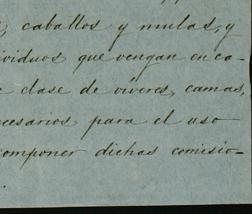 , caballos y mulas, y
dividuos que vengan en ca-
e clase de víveres, camas,
ecesarios para el uso
componer dichas comisio-